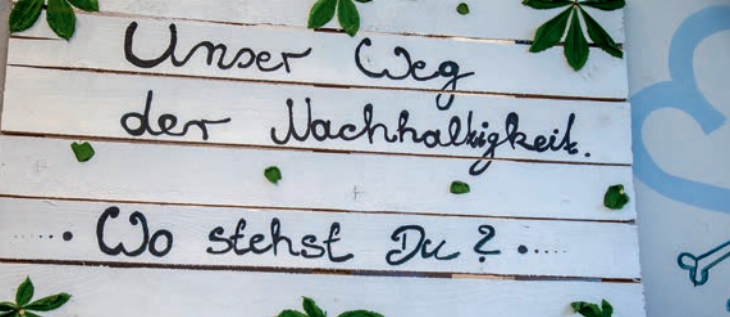 Unser Weg
der Nachhaltigkeit.
.....• Wo stehst Du? •.....